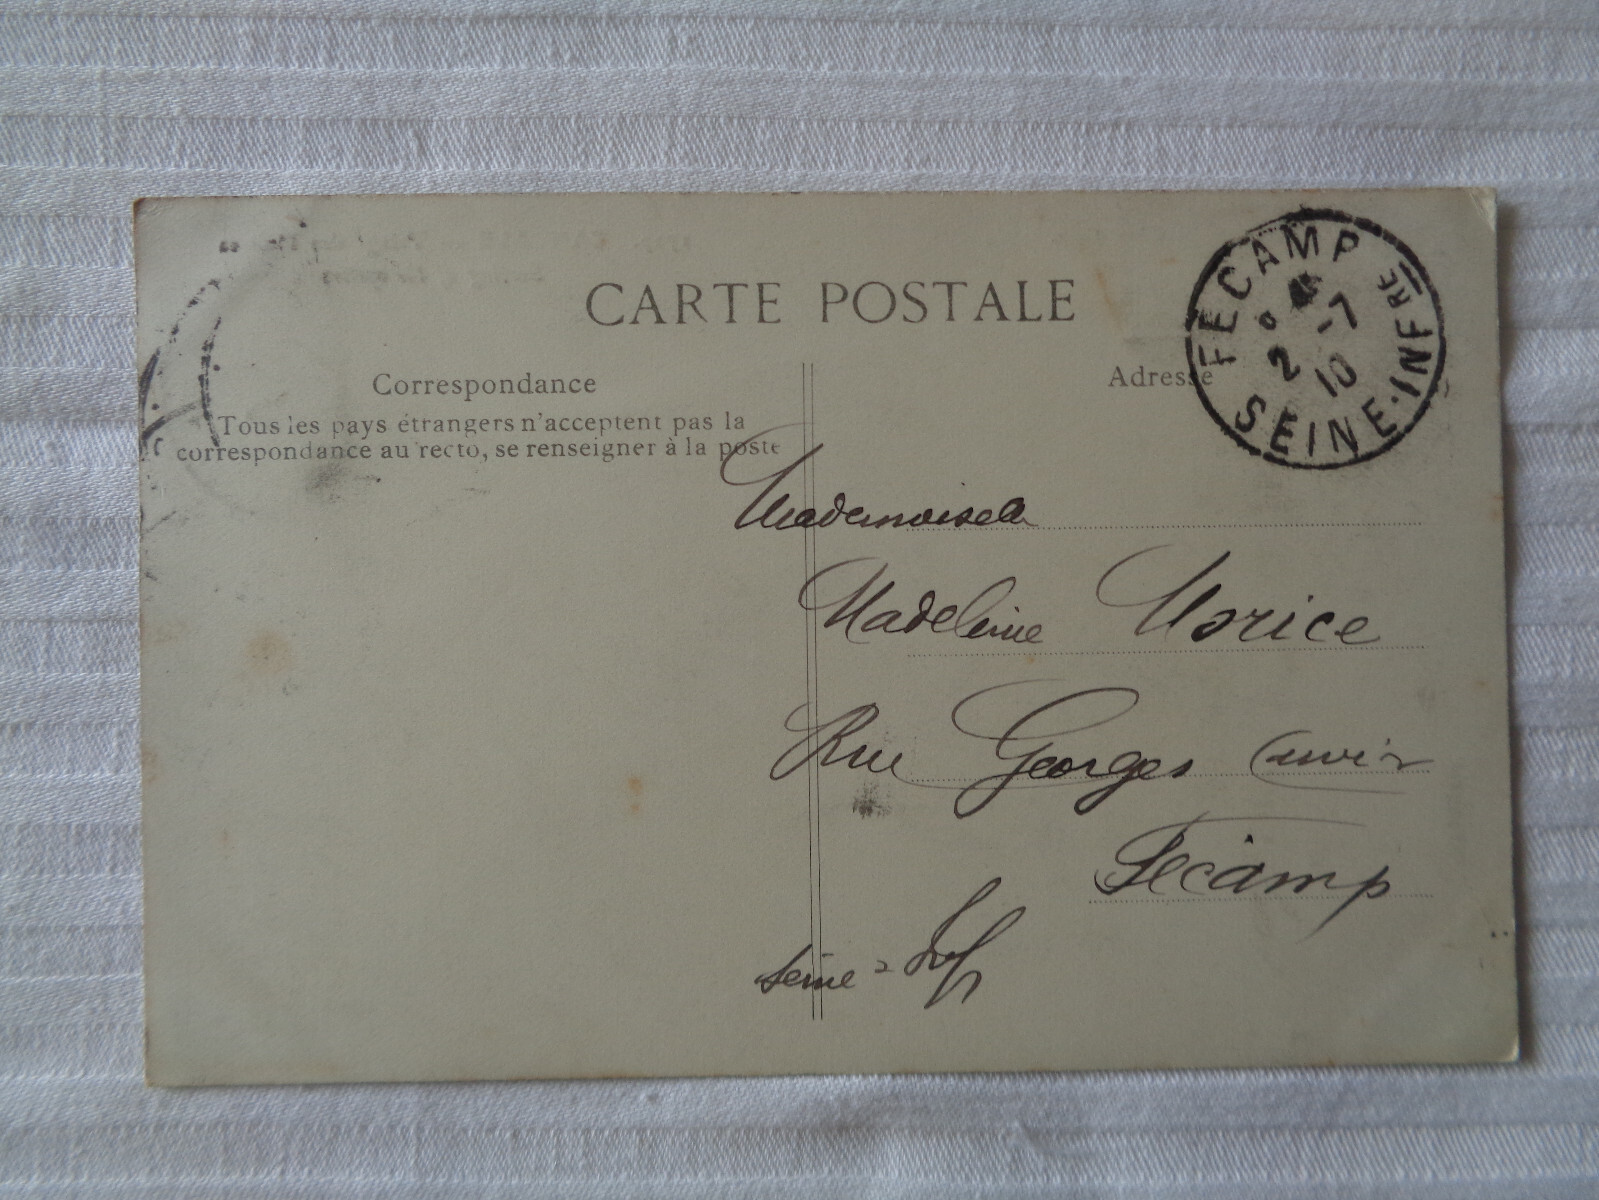 CARTE POSTALE
Correspondance
Tous les pays étrangers n'acceptent pas la
correspondance au recto, se renseigner à la poste
Adresse
FECAMP
2 -7
10
SEINE-INFRE
Mademoiselle
Madeleine Morice
Rue Georges Cuvier
Fécamp
Seine - Inf